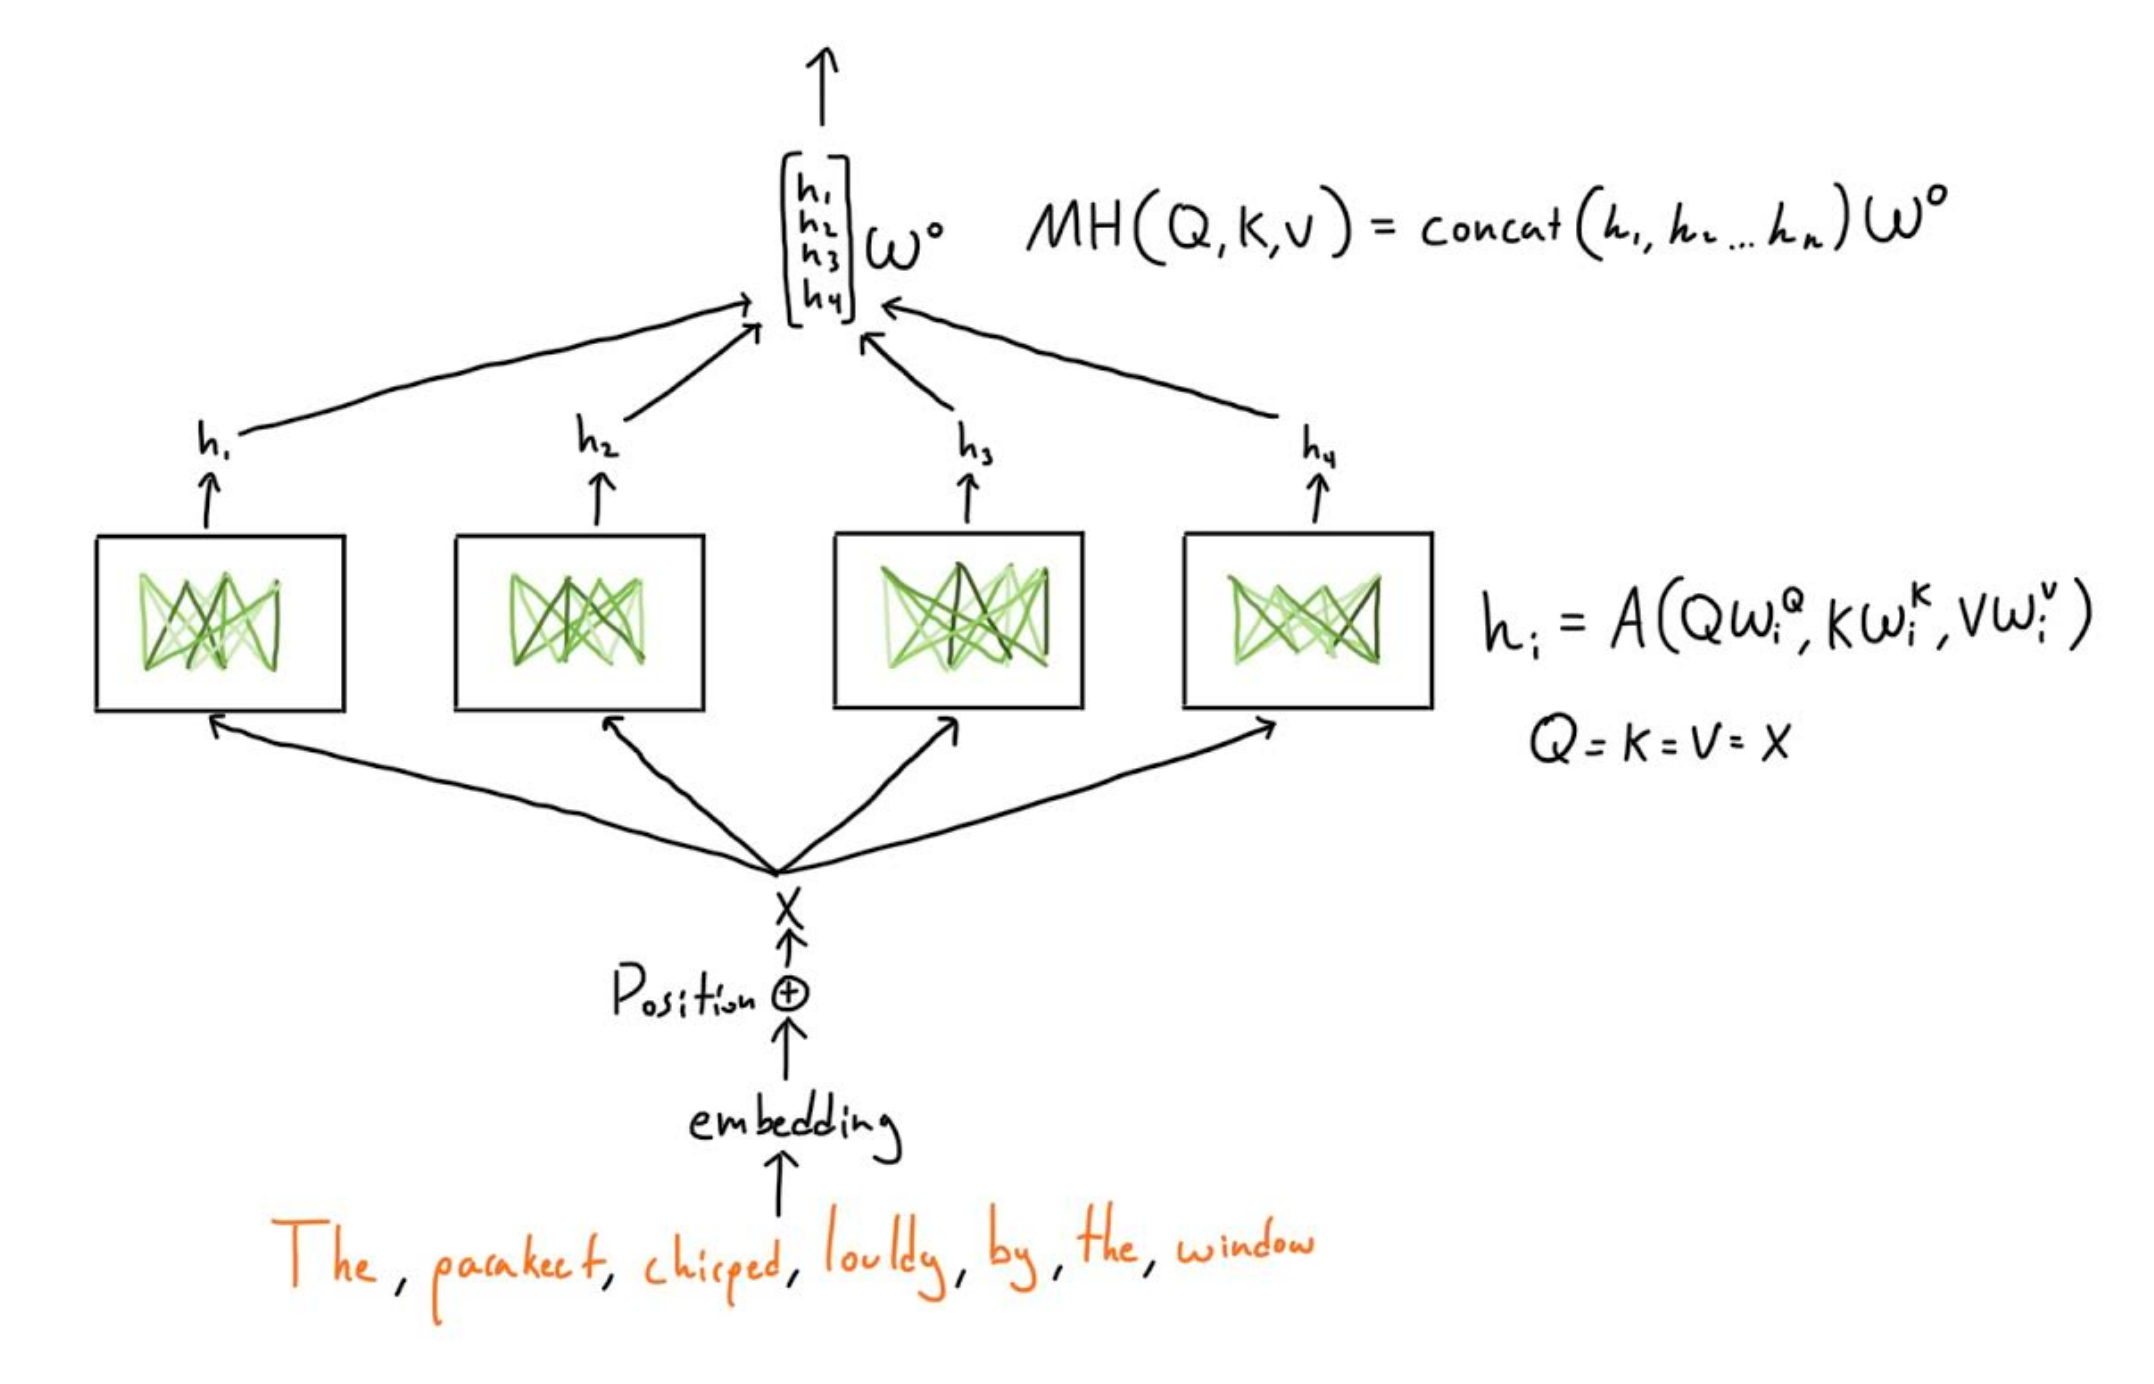 [h₁ h₂ h₃ h₄] W⁰
MH(Q,K,V) = concat(h₁, h₂ ... hₙ)W⁰
h₁ h₂ h₃ h₄
hᵢ = A(QWᵢ^Q, KWᵢ^K, VWᵢ^V)
Q = K = V = X
X
Position ⊕
embedding
The, parakeet, chirped, louldy, by, the, window